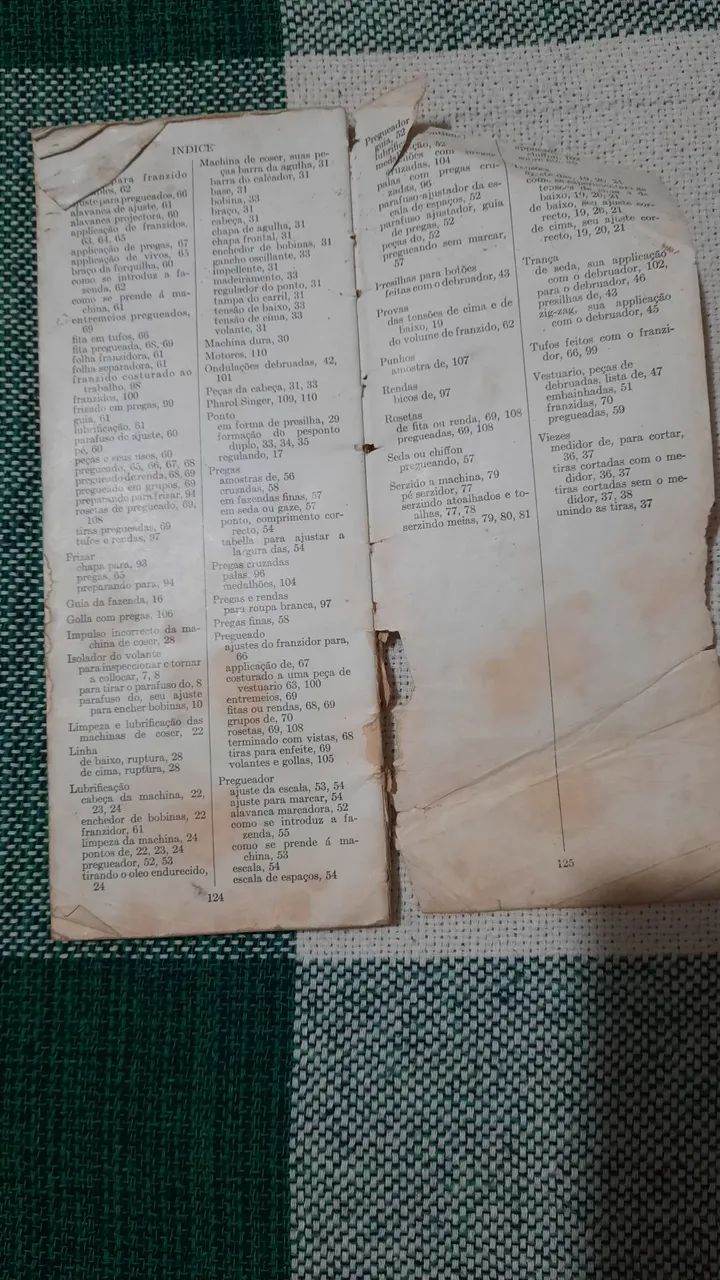 INDICE
para franzido
62
ajuste para pregueados, 66
alavanca de ajuste, 61
alavanca projectora, 60
applicação de franzidos,
63, 64, 65
applicação de pregas, 67
applicação de vivos, 65
braço da forquilha, 60
como se introduz a fa-
zenda, 62
como se prende á ma-
china, 61
entremeios pregueados,
69
fita em tufos, 66
fita pregueada, 68, 69
folha franzidora, 61
folha separadora, 61
franzido costurado ao
trabalho, 98
franzidos, 100
frizado em pregas, 99
guia, 61
lubrificação, 61
parafuso de ajuste, 60
pé, 60
peças e seus usos, 60
pregueado, 65, 66, 67, 68
pregueado de renda, 68, 69
pregueado em grupos, 69
preparando para frizar, 94
rosetas de pregueado, 69,
108
tiras pregueadas, 69
tufos e rendas, 97
Frizar
chapa para, 93
pregas, 65
preparando para, 94
Guia da fazenda, 16
Golla com pregas, 106
Impulso incorrecto da ma-
china de coser, 28
Isolador do volante
para inspeccionar e tornar
a collocar, 7, 8
para tirar o parafuso do, 8
parafuso do, seu ajuste
para encher bobinas, 10
Limpeza e lubrificação das
machinas de coser, 22
Linha
de baixo, ruptura, 28
de cima, ruptura, 28
Lubrificação
cabeça da machina, 22,
23, 24
enchedor de bobinas, 22
franzidor, 61
limpeza da machina, 24
pontos de, 22, 23, 24
pregueador, 52, 53
tirando o oleo endurecido,
24
Machina de coser, suas pe-
ças barra da agulha, 31
barra do calcador, 31
base, 31
bobina, 33
braço, 31
cabeça, 31
chapa de agulha, 31
chapa frontal, 31
enchedor de bobinas, 31
gancho oscillante, 33
impellente, 31
madeiramento, 33
regulador do ponto, 31
tampa do carril, 31
tensão de baixo, 33
tensão de cima, 33
volante, 31
Machina dura, 30
Motores, 110
Ondulações debruadas, 42,
101
Peças da cabeça, 31, 33
Pharol Singer, 109, 110
Ponto
em forma de presilha, 29
formação do pesponto
duplo, 33, 34, 35
regulando, 17
Pregas
amostras de, 56
cruzadas, 58
em fazendas finas, 57
em seda ou gaze, 57
ponto, comprimento cor-
recto, 54
tabella para ajustar a
largura das, 54
Pregas cruzadas
palas. 96
medalhões, 104
Pregas e rendas
para roupa branca, 97
Pregas finas, 58
Pregueado
ajustes do franzidor para,
66
applicação de, 67
costurado a uma peça de
vestuario 63, 100
entremeios, 69
fitas ou rendas, 68, 69
grupos de, 70
rosetas, 69, 108
terminado com vistas, 68
tiras para enfeite, 69
volantes e gollas, 105
Pregueador
ajuste da escala, 53, 54
ajuste para marcar, 54
alavanca marcadora, 52
como se introduz a fa-
zenda, 55
como se prende á ma-
china, 53
escala, 54
escala de espaços, 54
124
Pregueador
guia, 52
lubrificação, 52
medalhões com pregas
cruzadas, 104
palas com pregas cru-
zadas, 96
parafuso ajustador da es-
cala de espaços, 52
parafuso ajustador, guia
de pregas, 52
peças do, 52
pregueando sem marcar,
57
Presilhas para botões
feitas com o debruador, 43
Provas
das tonsões de cima e de
baixo, 19
do volume de franzido, 62
Punhos
amostra de, 107
Rendas
bicos de, 97
Rosetas
de fita ou renda, 69, 108
pregueadas, 69, 108
Seda ou chiffon
pregueando, 57
Serzido a machina, 79
pé serzidor, 77
serzindo atoalhados e to-
alhas, 77, 78
serzindo meias, 79, 80, 81
baixo, 19, 20, 21
de baixo, seu ajuste cor-
recto, 19, 20, 21
de cima, seu ajuste cor-
recto, 19, 20, 21
Trança
de seda, sua applicação
com o debruador, 102,
para o debruador, 46
presilhas de, 43
zig-zag, sua applicação
com o debruador, 45
Tufos feitos com o franzi-
dor, 66, 99
Vestuario, peças de
debruadas, lista de, 47
embainhadas, 51
franzidas, 70
pregueadas, 59
Viezes
medidor de, para cortar,
36, 37
tiras cortadas com o me-
didor, 36, 37
tiras cortadas sem o me-
didor, 37, 38
unindo as tiras, 37
125